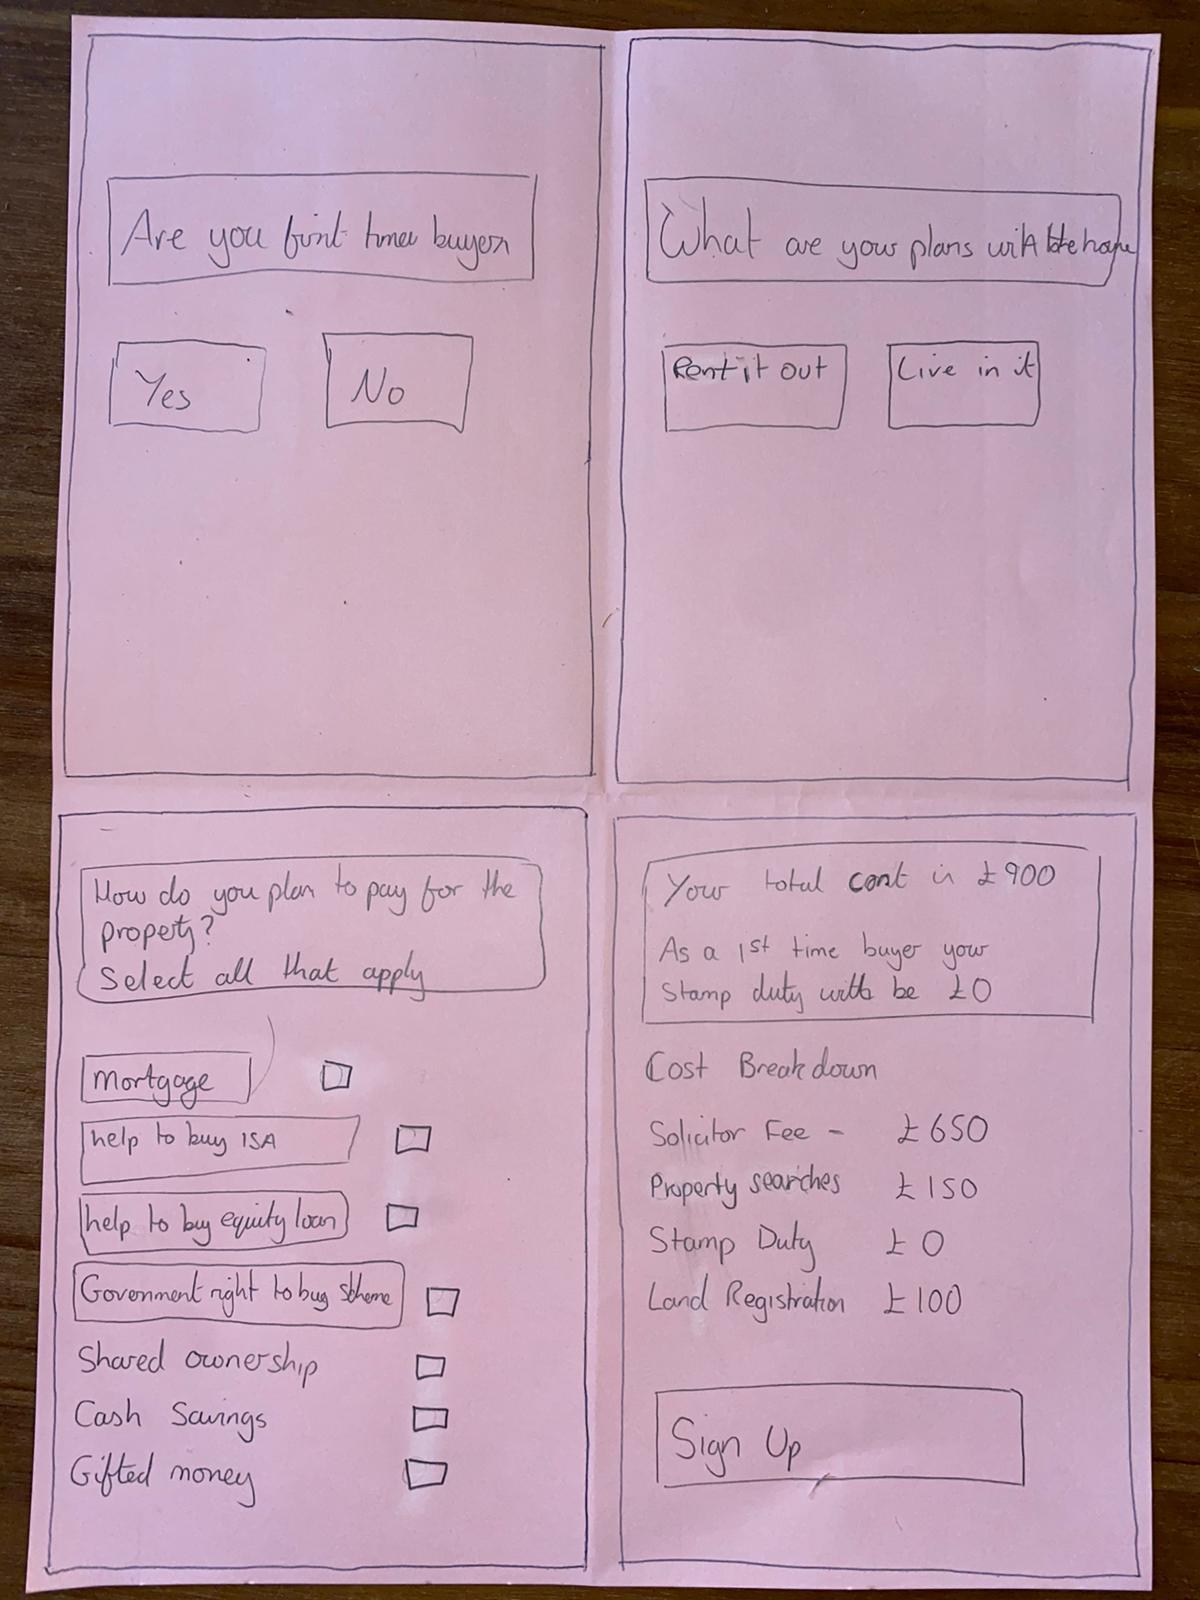 Are you first time buyers
Yes
No
What are your plans with the home
Rent it out
Live in it
How do you plan to pay for the
property?
Select all that apply
Mortgage
help to buy ISA
help to buy equity loan
Government right to buy scheme
Shared ownership
Cash Savings
Gifted money
Your total cost is £900
As a 1st time buyer your
Stamp duty will be £0
Cost Breakdown
Solicitor Fee - £650
Property searches £150
Stamp Duty £0
Land Registration £100
Sign Up